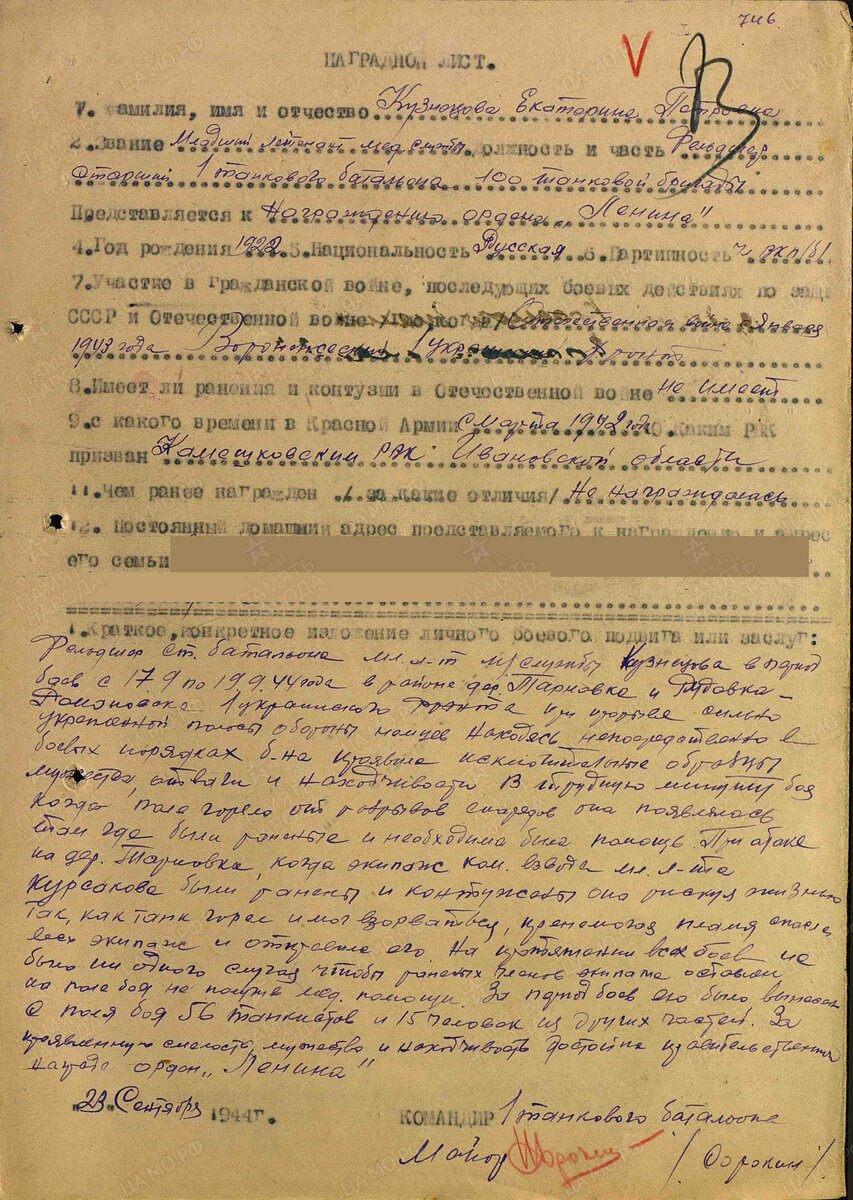 746
НАГРАДНОЙ ЛИСТ.
1. Фамилия, имя и отчество Кузнецова Екатерина Петровна
2. Звание Младший лейтенант мед службы должность и часть Фельдшер
старший 1 танкового батальона 100 танковой бригады
Представляется к награждению ордена „Ленина"
4. Год рождения 1922 5. Национальность Русская 6. Партийность ВКП/б/
7. Участие в Гражданской войне, последующих боевых действиях по защ
СССР и Отечественной войне Отечественная война с января
1943 года Воронежский 1 Украинский фронт
8. Имеет ли ранения и контузии в Отечественной войне не имеет
9. с какого времени в Красной Армии с марта 1942 год 10. Каким РВК
призван Камешковским РВК Ивановской области
11. Чем ранее награжден /за какие отличия/ Не награждалась
12. Постоянный домашний адрес представляемого к награждению и адрес
его семьи
1. Краткое, конкретное изложение личного боевого подвига или заслуг:
Фельдшер ст. батальона мл. л-т м/службы Кузнецова в период
боев с 17.9 по 19.9.44 года в районе дер. Тарновка и
1 украинского фронта при прорыве сильно
укрепленной полосы обороны немцев находясь непосредственно в
боевых порядках б-на проявила исключительные образцы
мужества, отваги и находчивости. В трудную минуту боя
когда поле горело от разрывов снарядов она появлялась
там где были раненые и необходима была помощь. При атаке
на дер. Тарновка, когда экипаж ком. взвода мл. л-та
Курсакова были ранены и контужены она рискуя жизнью
так, как танк горел и мог взорваться, пренемогая пламя спасла
весь экипаж и отправила его. На протяжении всех боев не
было ни одного случая чтобы раненых членов экипажа оставлен
на поле боя не помощи. За период боев ею было вынесено
с поля боя 56 танкистов и 15 человек из других частей. За
проявленную смелость, мужество и находчивость достойна правительственной
награде орден „Ленина"
23 Сентября 1944г.
КОМАНДИР 1 танкового батальона
Майор /Сорокин/